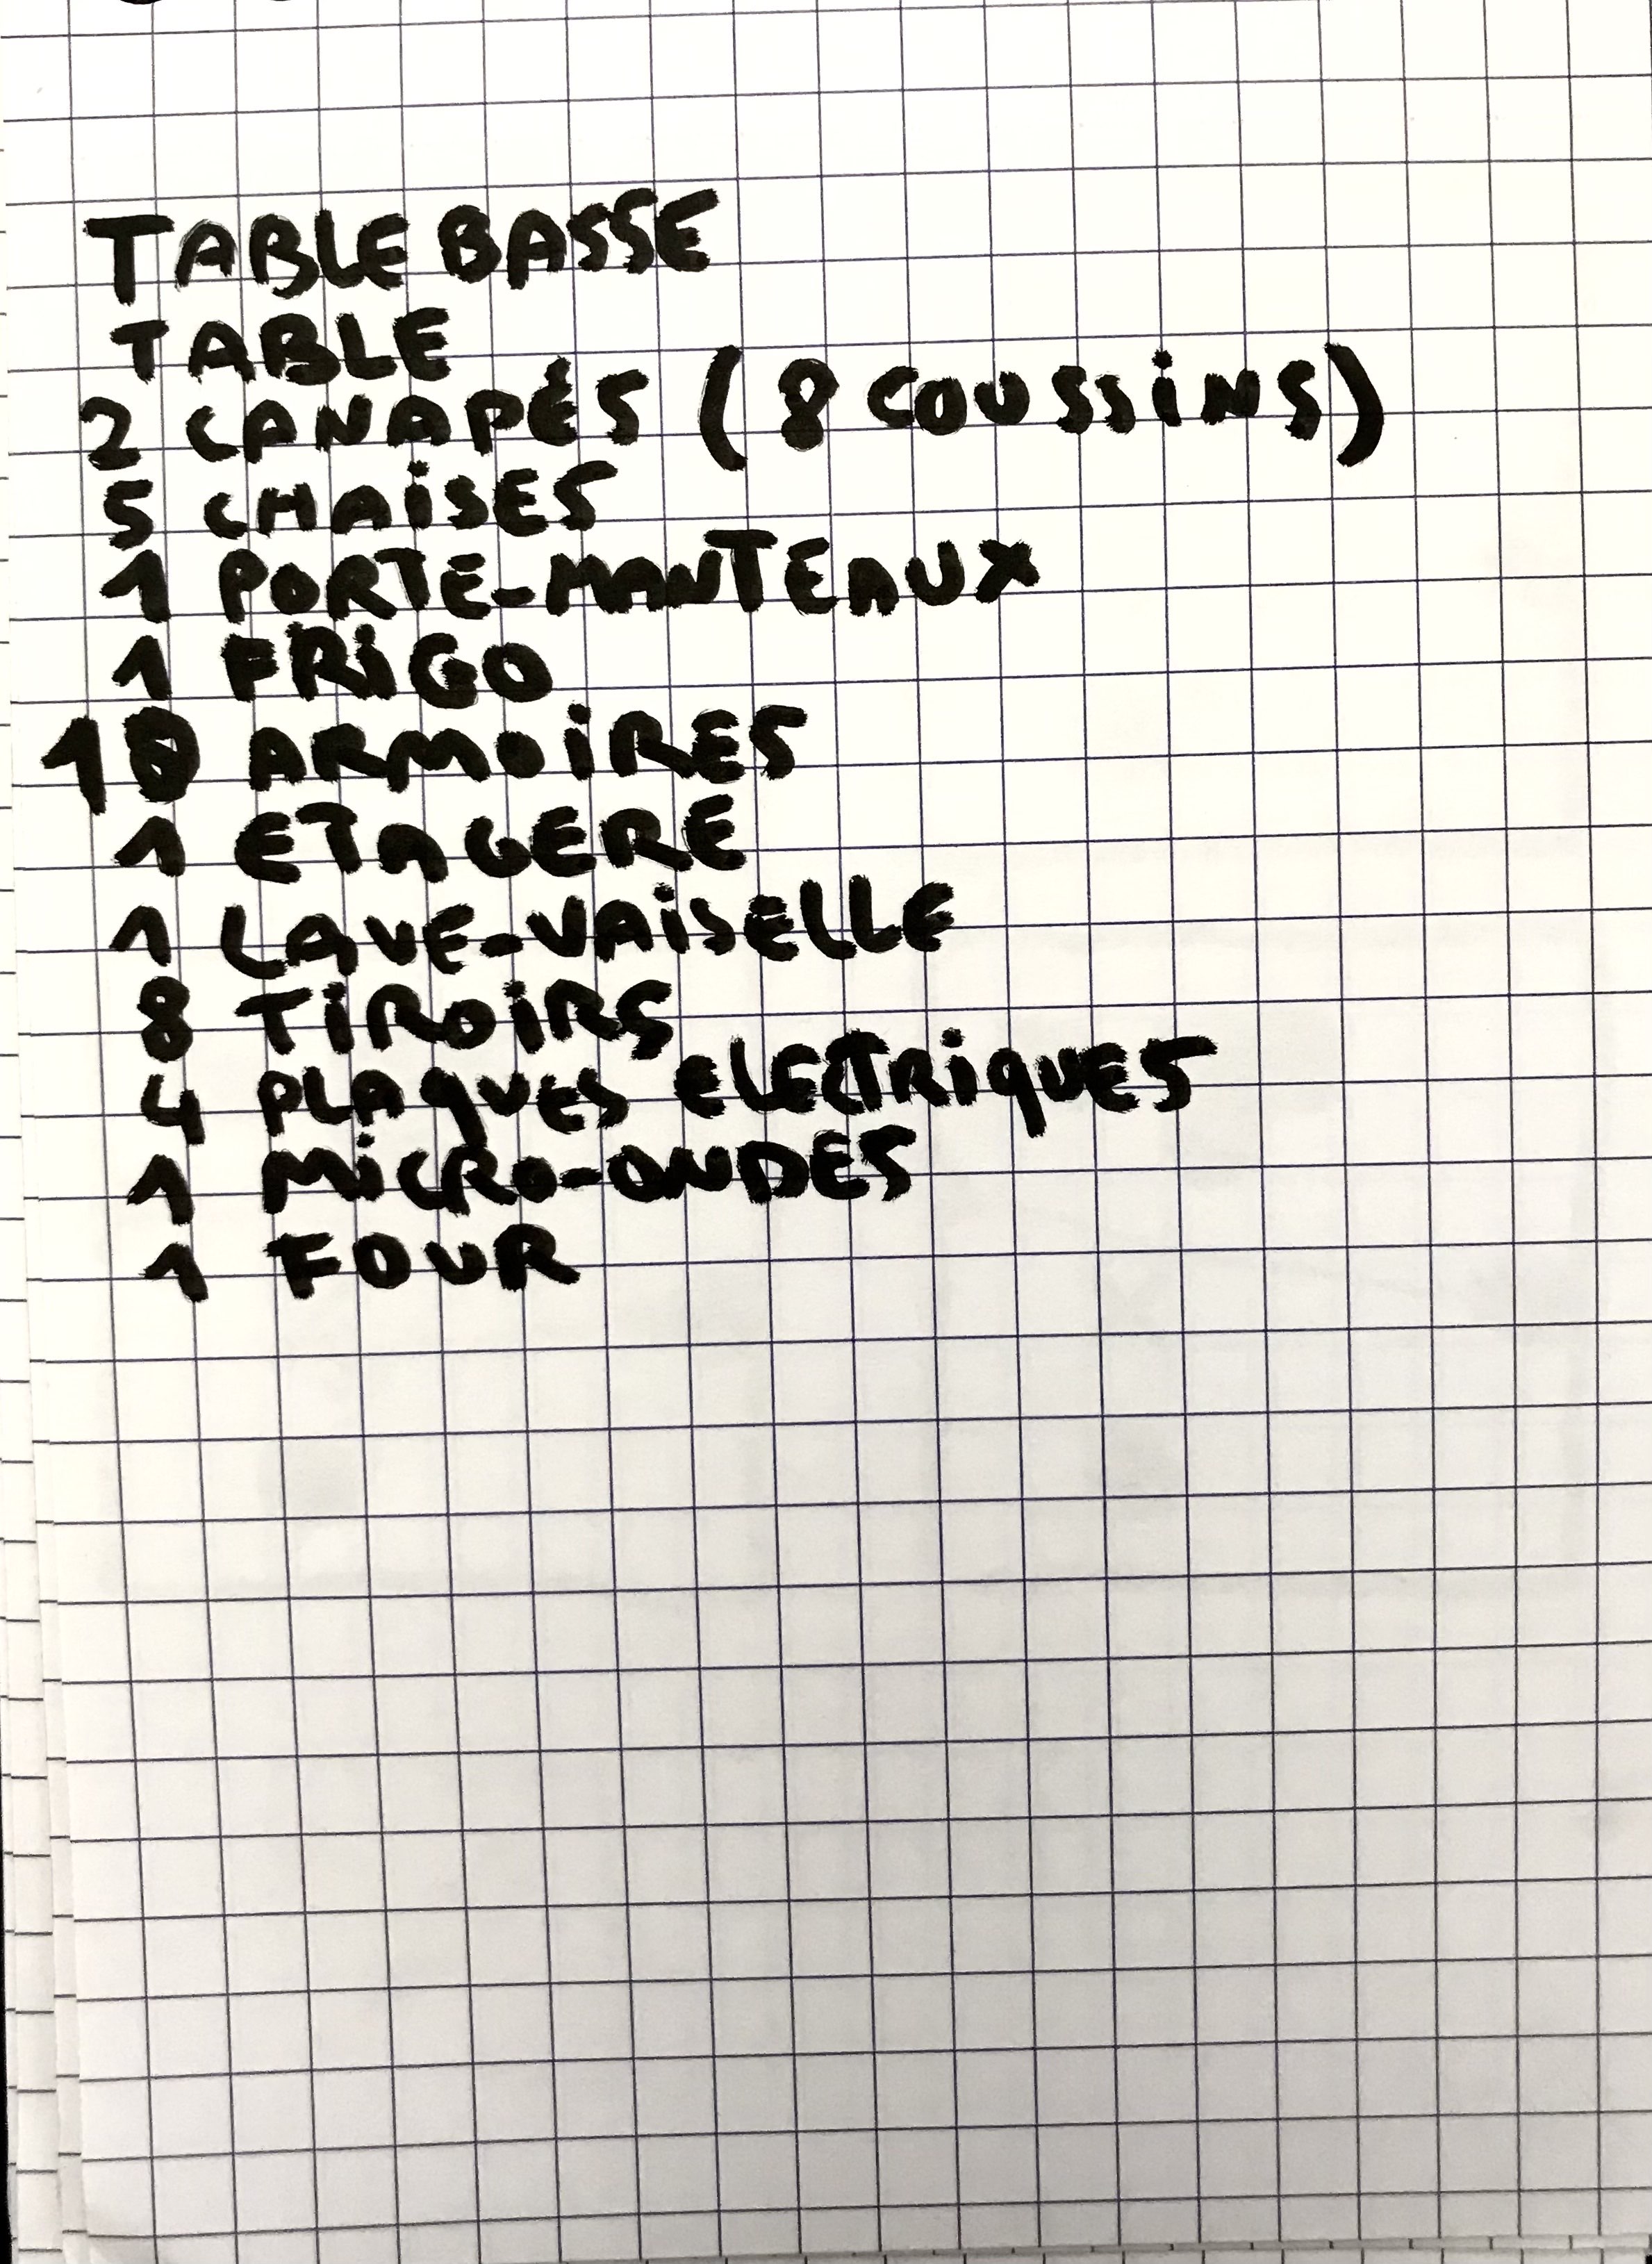 TABLE BASSE
TABLE
2 CANAPÉS (8 COUSSiNS)
5 CHAiSES
1 PORTE-MANTEAUX
1 FRiGO
10 ARMOiRES
1 ETAGERE
1 LAVE-VAiSELLE
8 TiROiRS
4 PLAQUES ELECTRiQUES
1 MiCRO-ONDES
1 FOUR